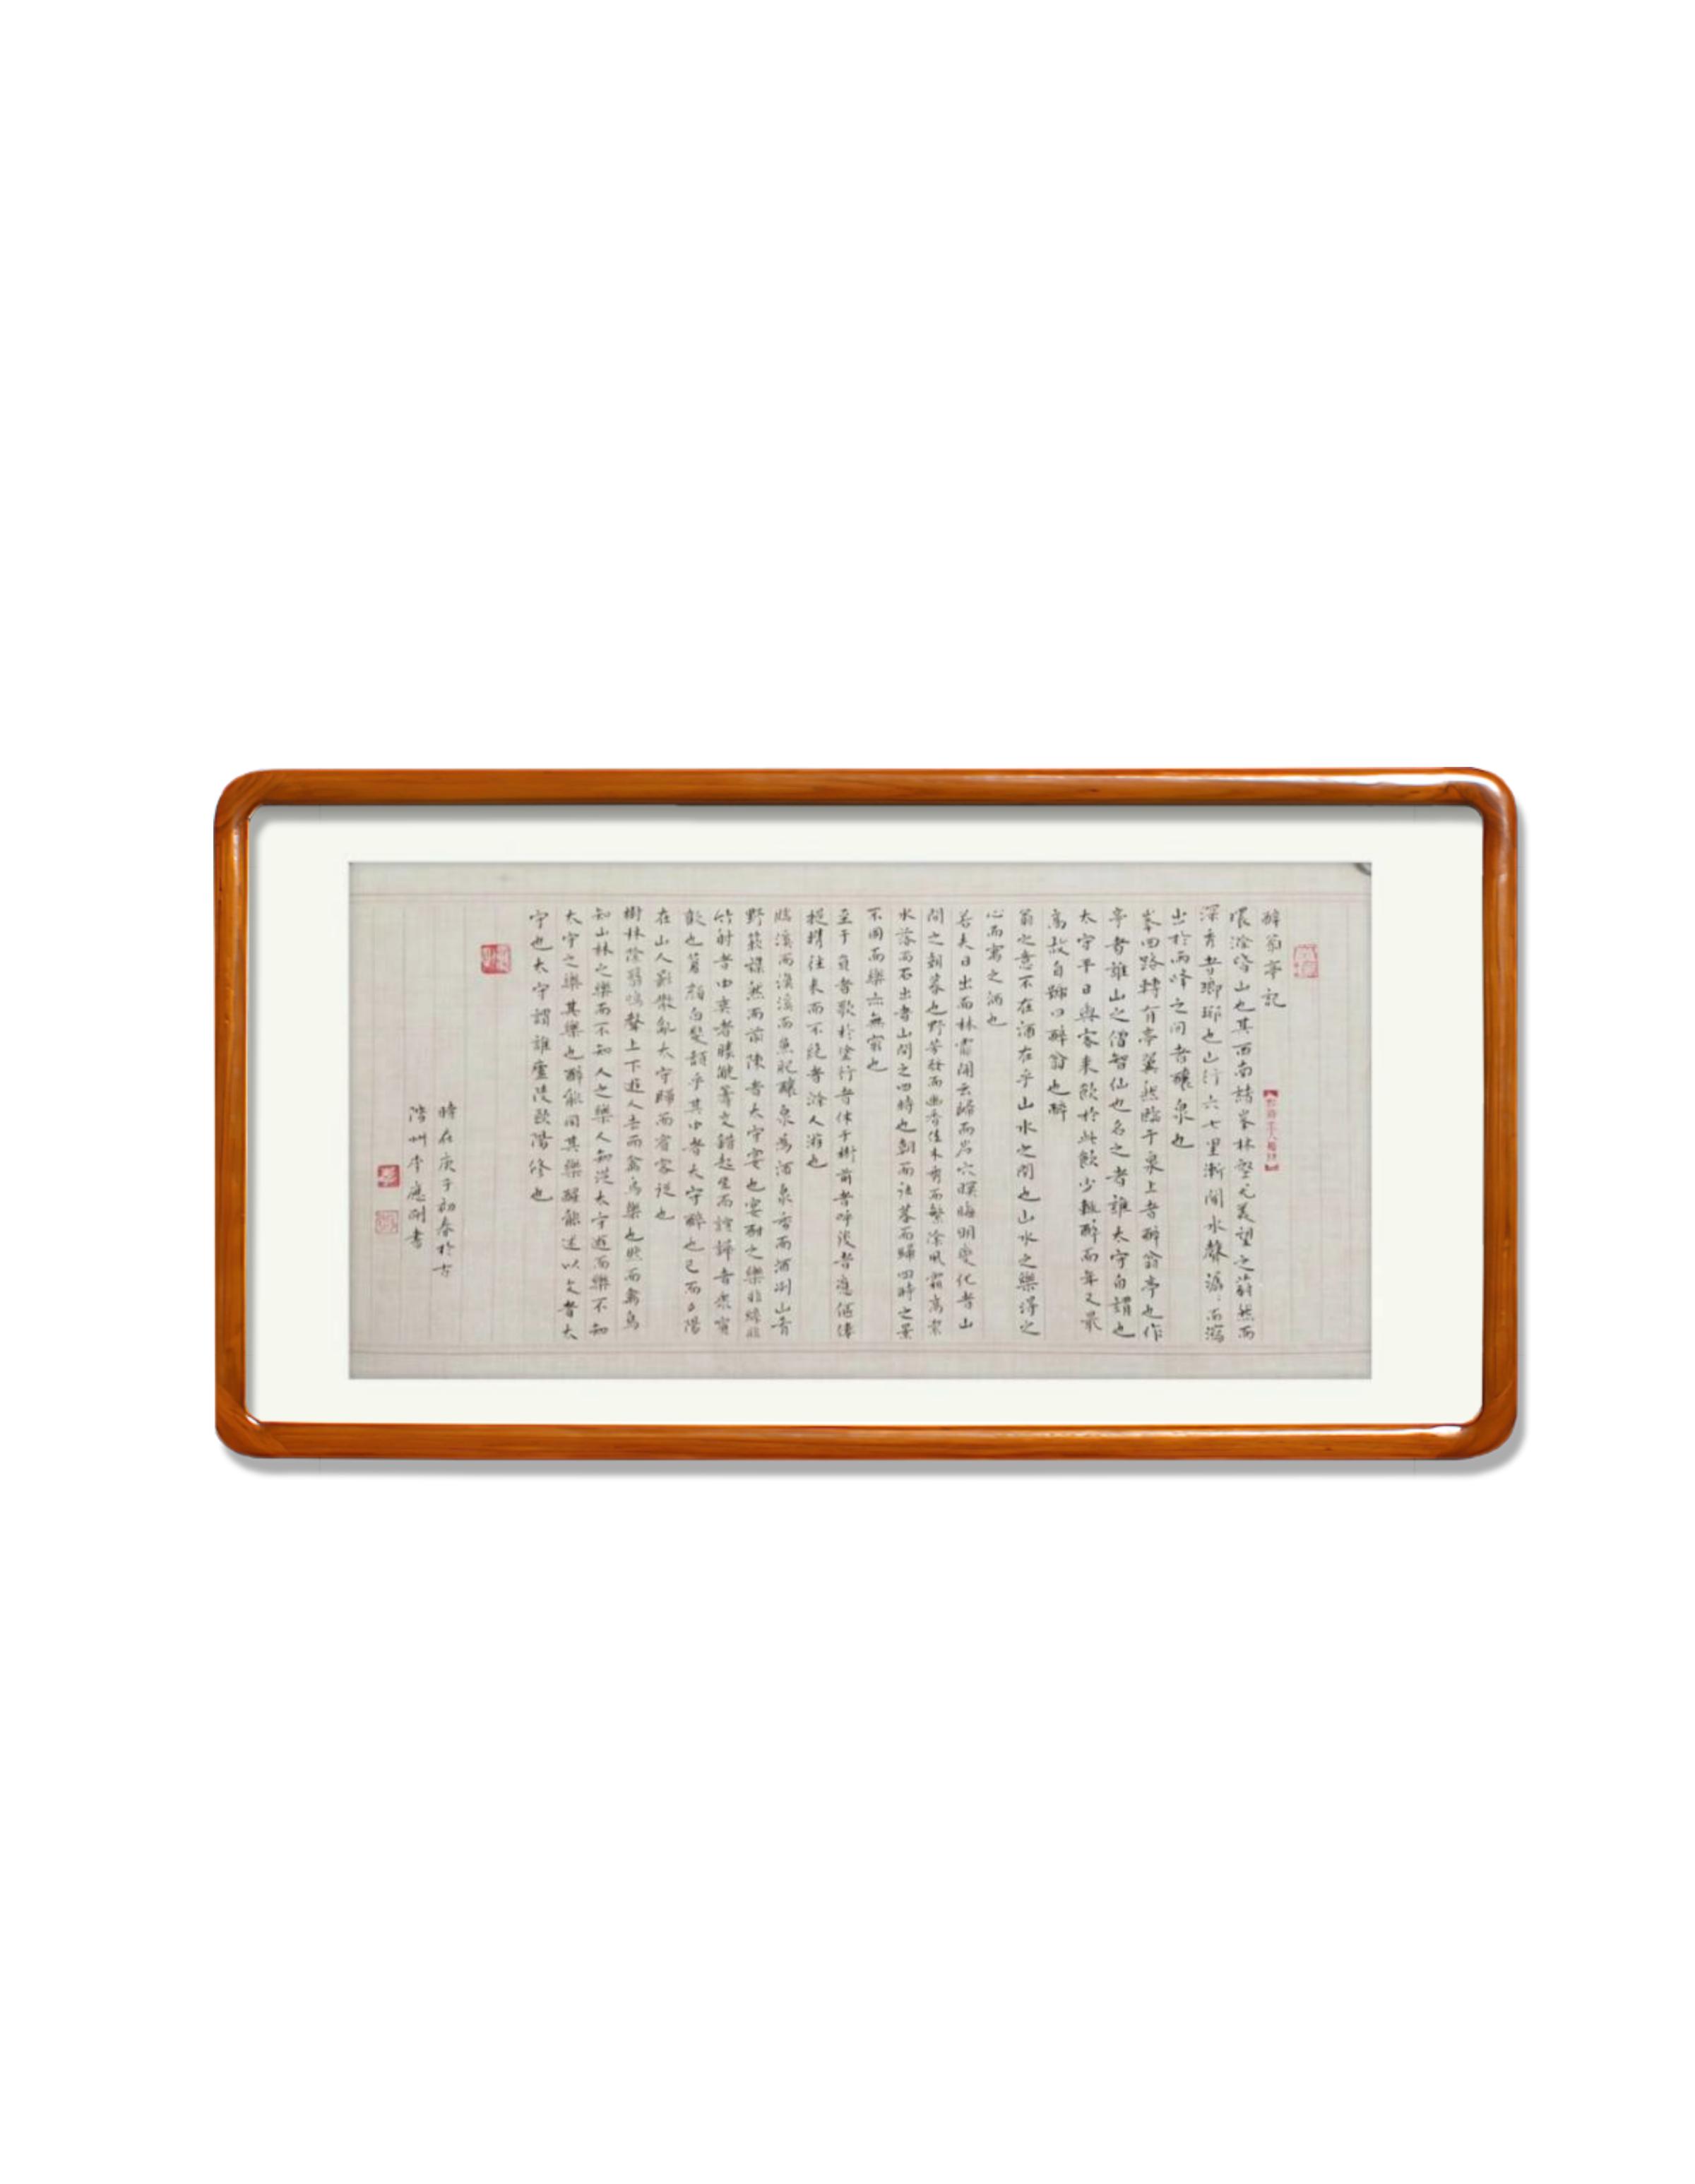 醉翁亭記
環滁皆山也其西南諸峯林壑尤美望之蔚然而
深秀者瑯琊也山行六七里漸聞水聲潺潺而瀉
出於兩峰之間者釀泉也
峯回路轉有亭翼然臨于泉上者醉翁亭也作
亭者誰山之僧智仙也名之者誰太守自謂也
太守平日與客来飲於此飲少輒醉而年又最
高故自號曰醉翁也醉
翁之意不在酒在乎山水之間也山水之樂得之
心而寓之酒也
若夫日出而林霏開云歸而岩穴暝晦明變化者山
間之朝暮也野芳發而幽香佳木秀而繁陰風霜高潔
水落而石出者山間之四時也朝而往暮而歸四時之景
不同而樂亦無窮也
至于負者歌於塗行者休于樹前者呼後者應傴僂
提携往来而不絶者滁人游也
臨溪而漁溪而魚肥釀泉為酒泉香而酒冽山肴
野蔌雜然而前陳者太守宴也宴酣之樂非絲非
竹射者中奕者勝觥籌交錯起坐而諠譁者衆賓
歡也蒼顔白髮頽乎其中者太守醉也已而夕陽
在山人影散亂太守歸而賓客從也
樹林陰翳鳴聲上下遊人去而禽鳥樂也然而禽鳥
知山林之樂而不知人之樂人知從太守遊而樂不知
太守之樂其樂也醉能同其樂醒能述以文者太
守也太守謂誰廬陵歐陽修也
時在庚子初春於古
階州李應剛書